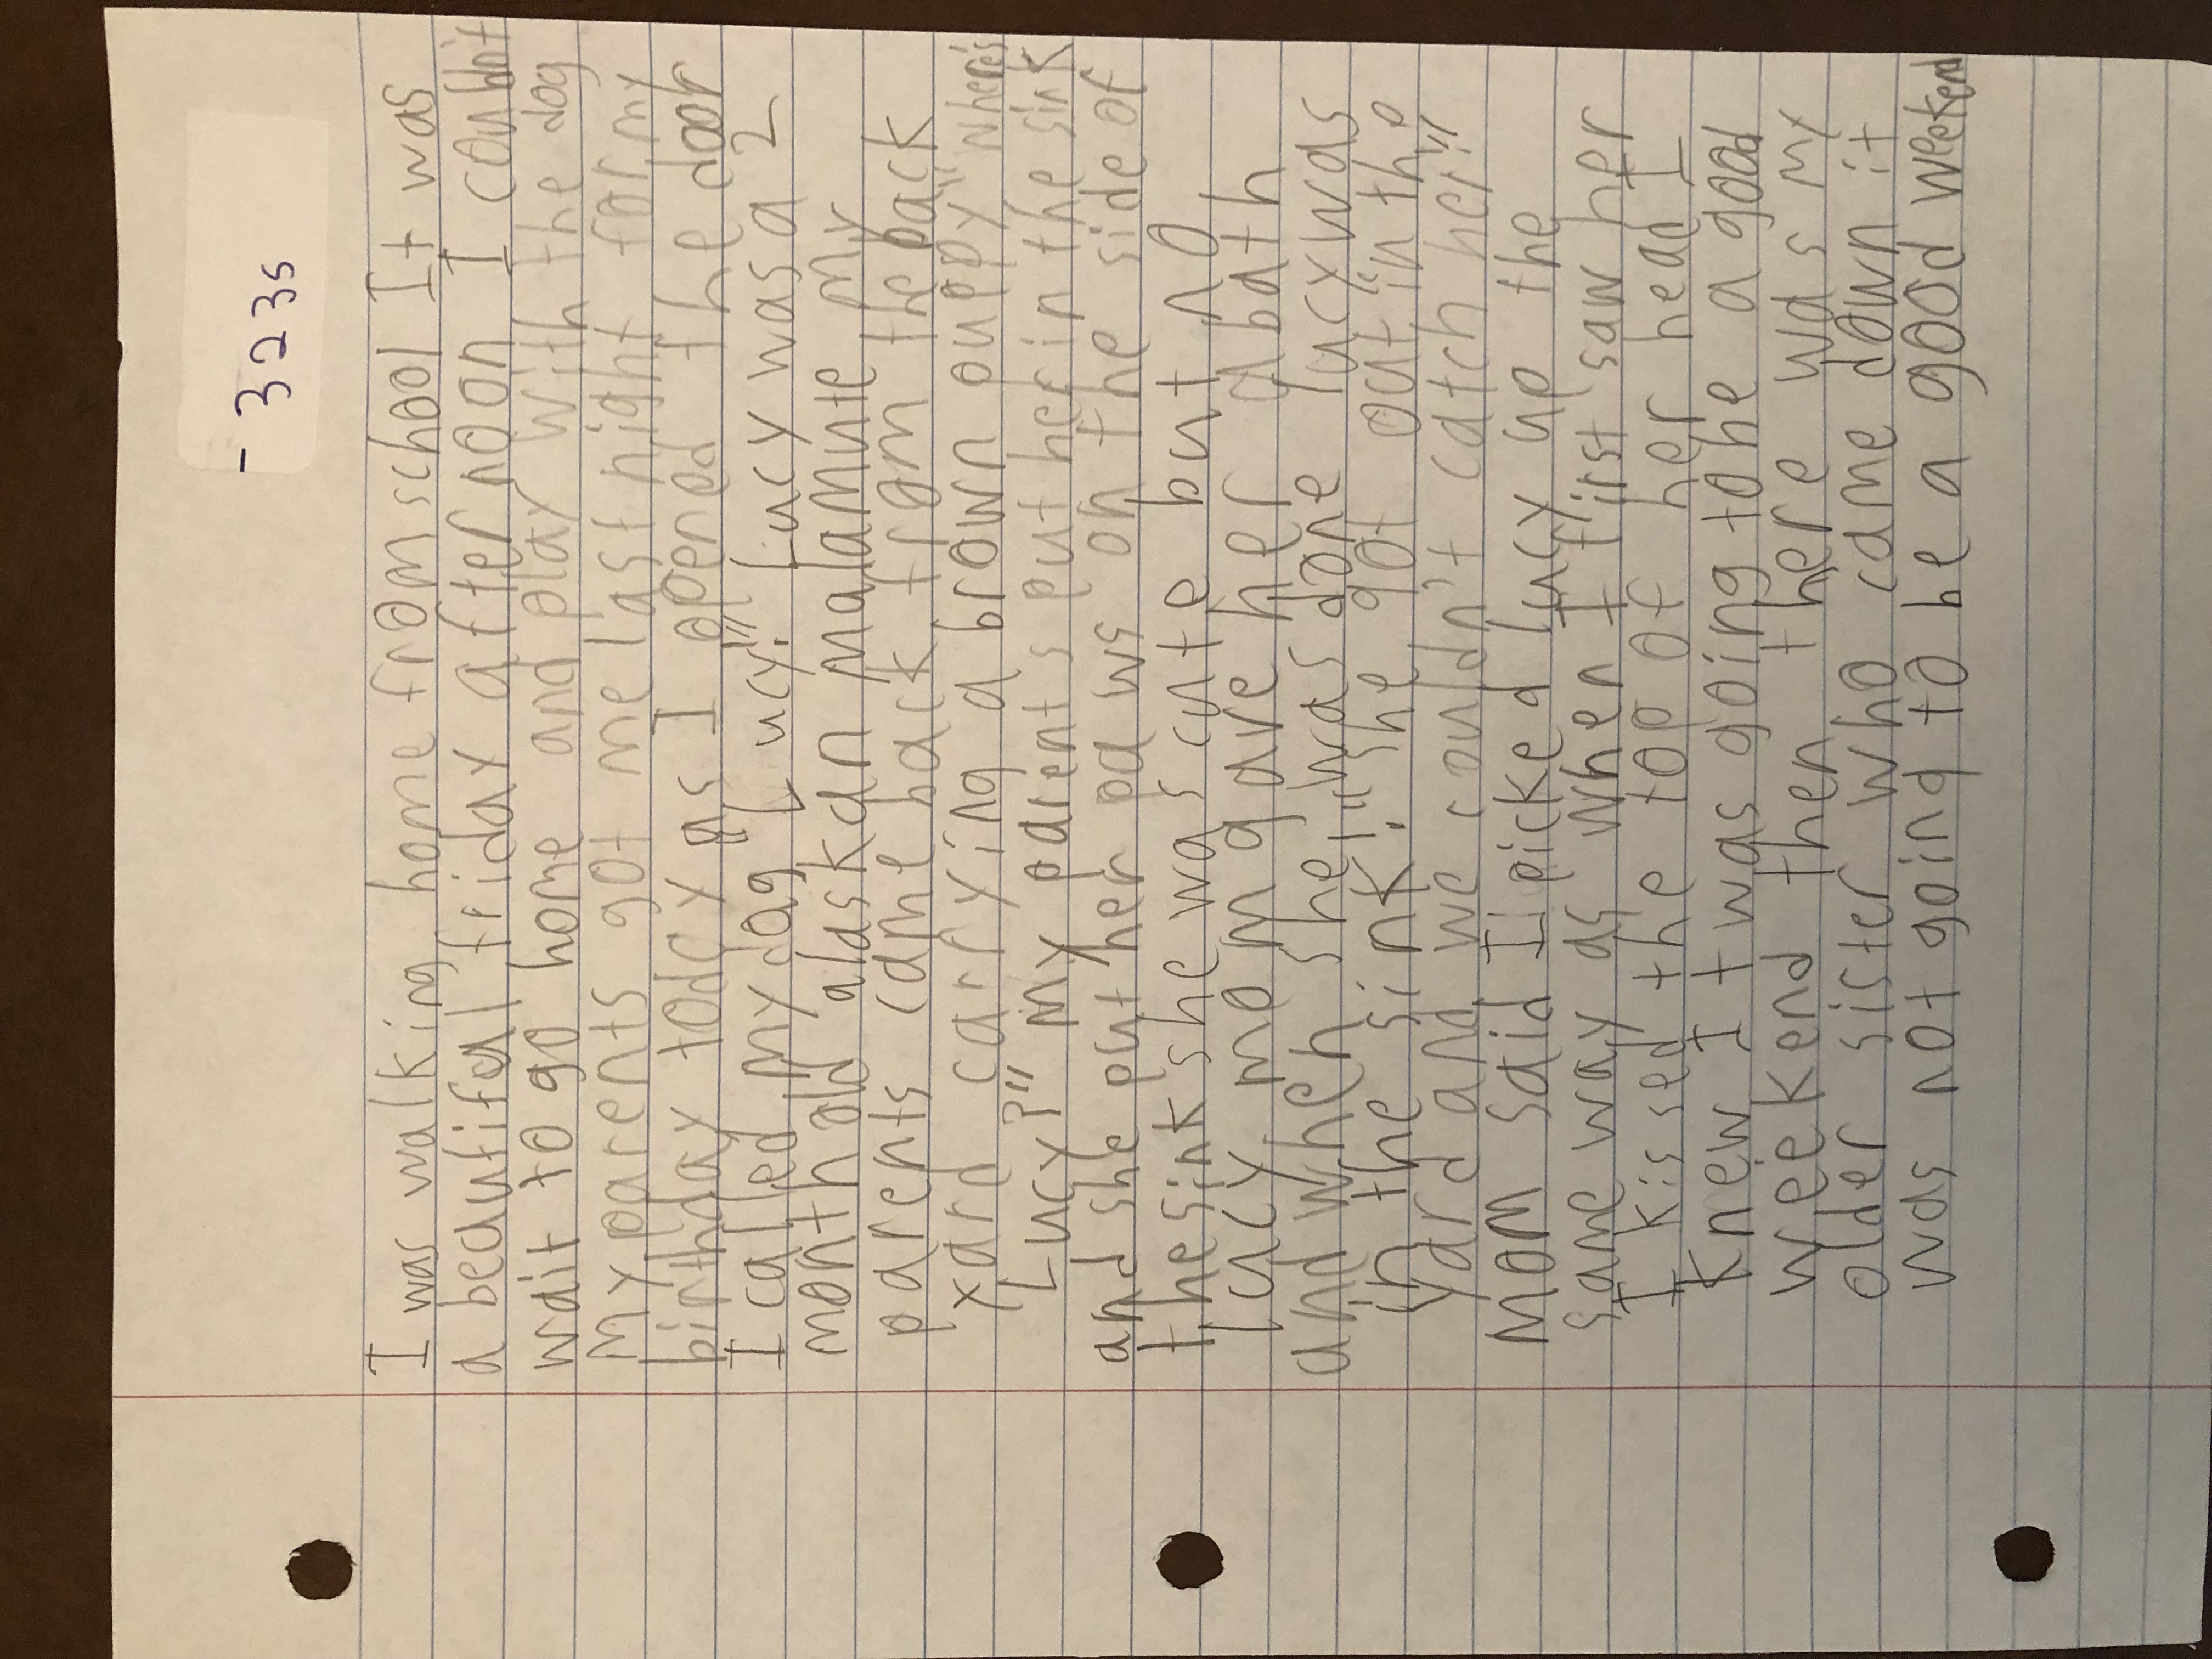 - 3235
I was walking home from school It was
a beautiful friday afternoon I couldn't
wait to go home and play with the dog
My parents got me last night for my
birthday today as I opened the door
I called my dog "Lucy!" Lucy was a 2
month old alaskan malamute my
parents came back from the back
yard carrying a brown puppy "where's
Lucy?" My parent's put her in the sink
and she put her paws on the side of
the sink she was cute but no
lucy mom gave her a bath
and when she was done lucy was
in the sink! "She got out in the
yard and we couldn't catch her!"
Mom said I picked lucy up the
same way as when I first saw her
I kissed the top of her head I
knew It was going to be a good
weekend then there was my
older sister who came down it
was not going to be a good weekend